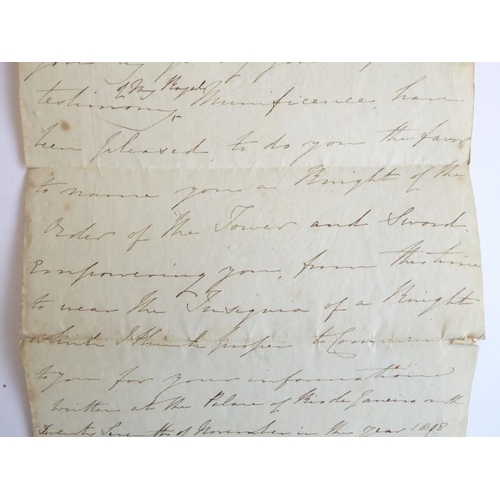 of My Royal
testimony, Munificence, have
been pleased, to do you the favor
to name you a Knight of the
Order of the Tower and Sword.
Empowering you, from this time
to wear the Insignia of a Knight
which I think proper to
to you for your information
written at the Palace of Rio de Janeiro on the
Twenty Seventh of November in the year 1808